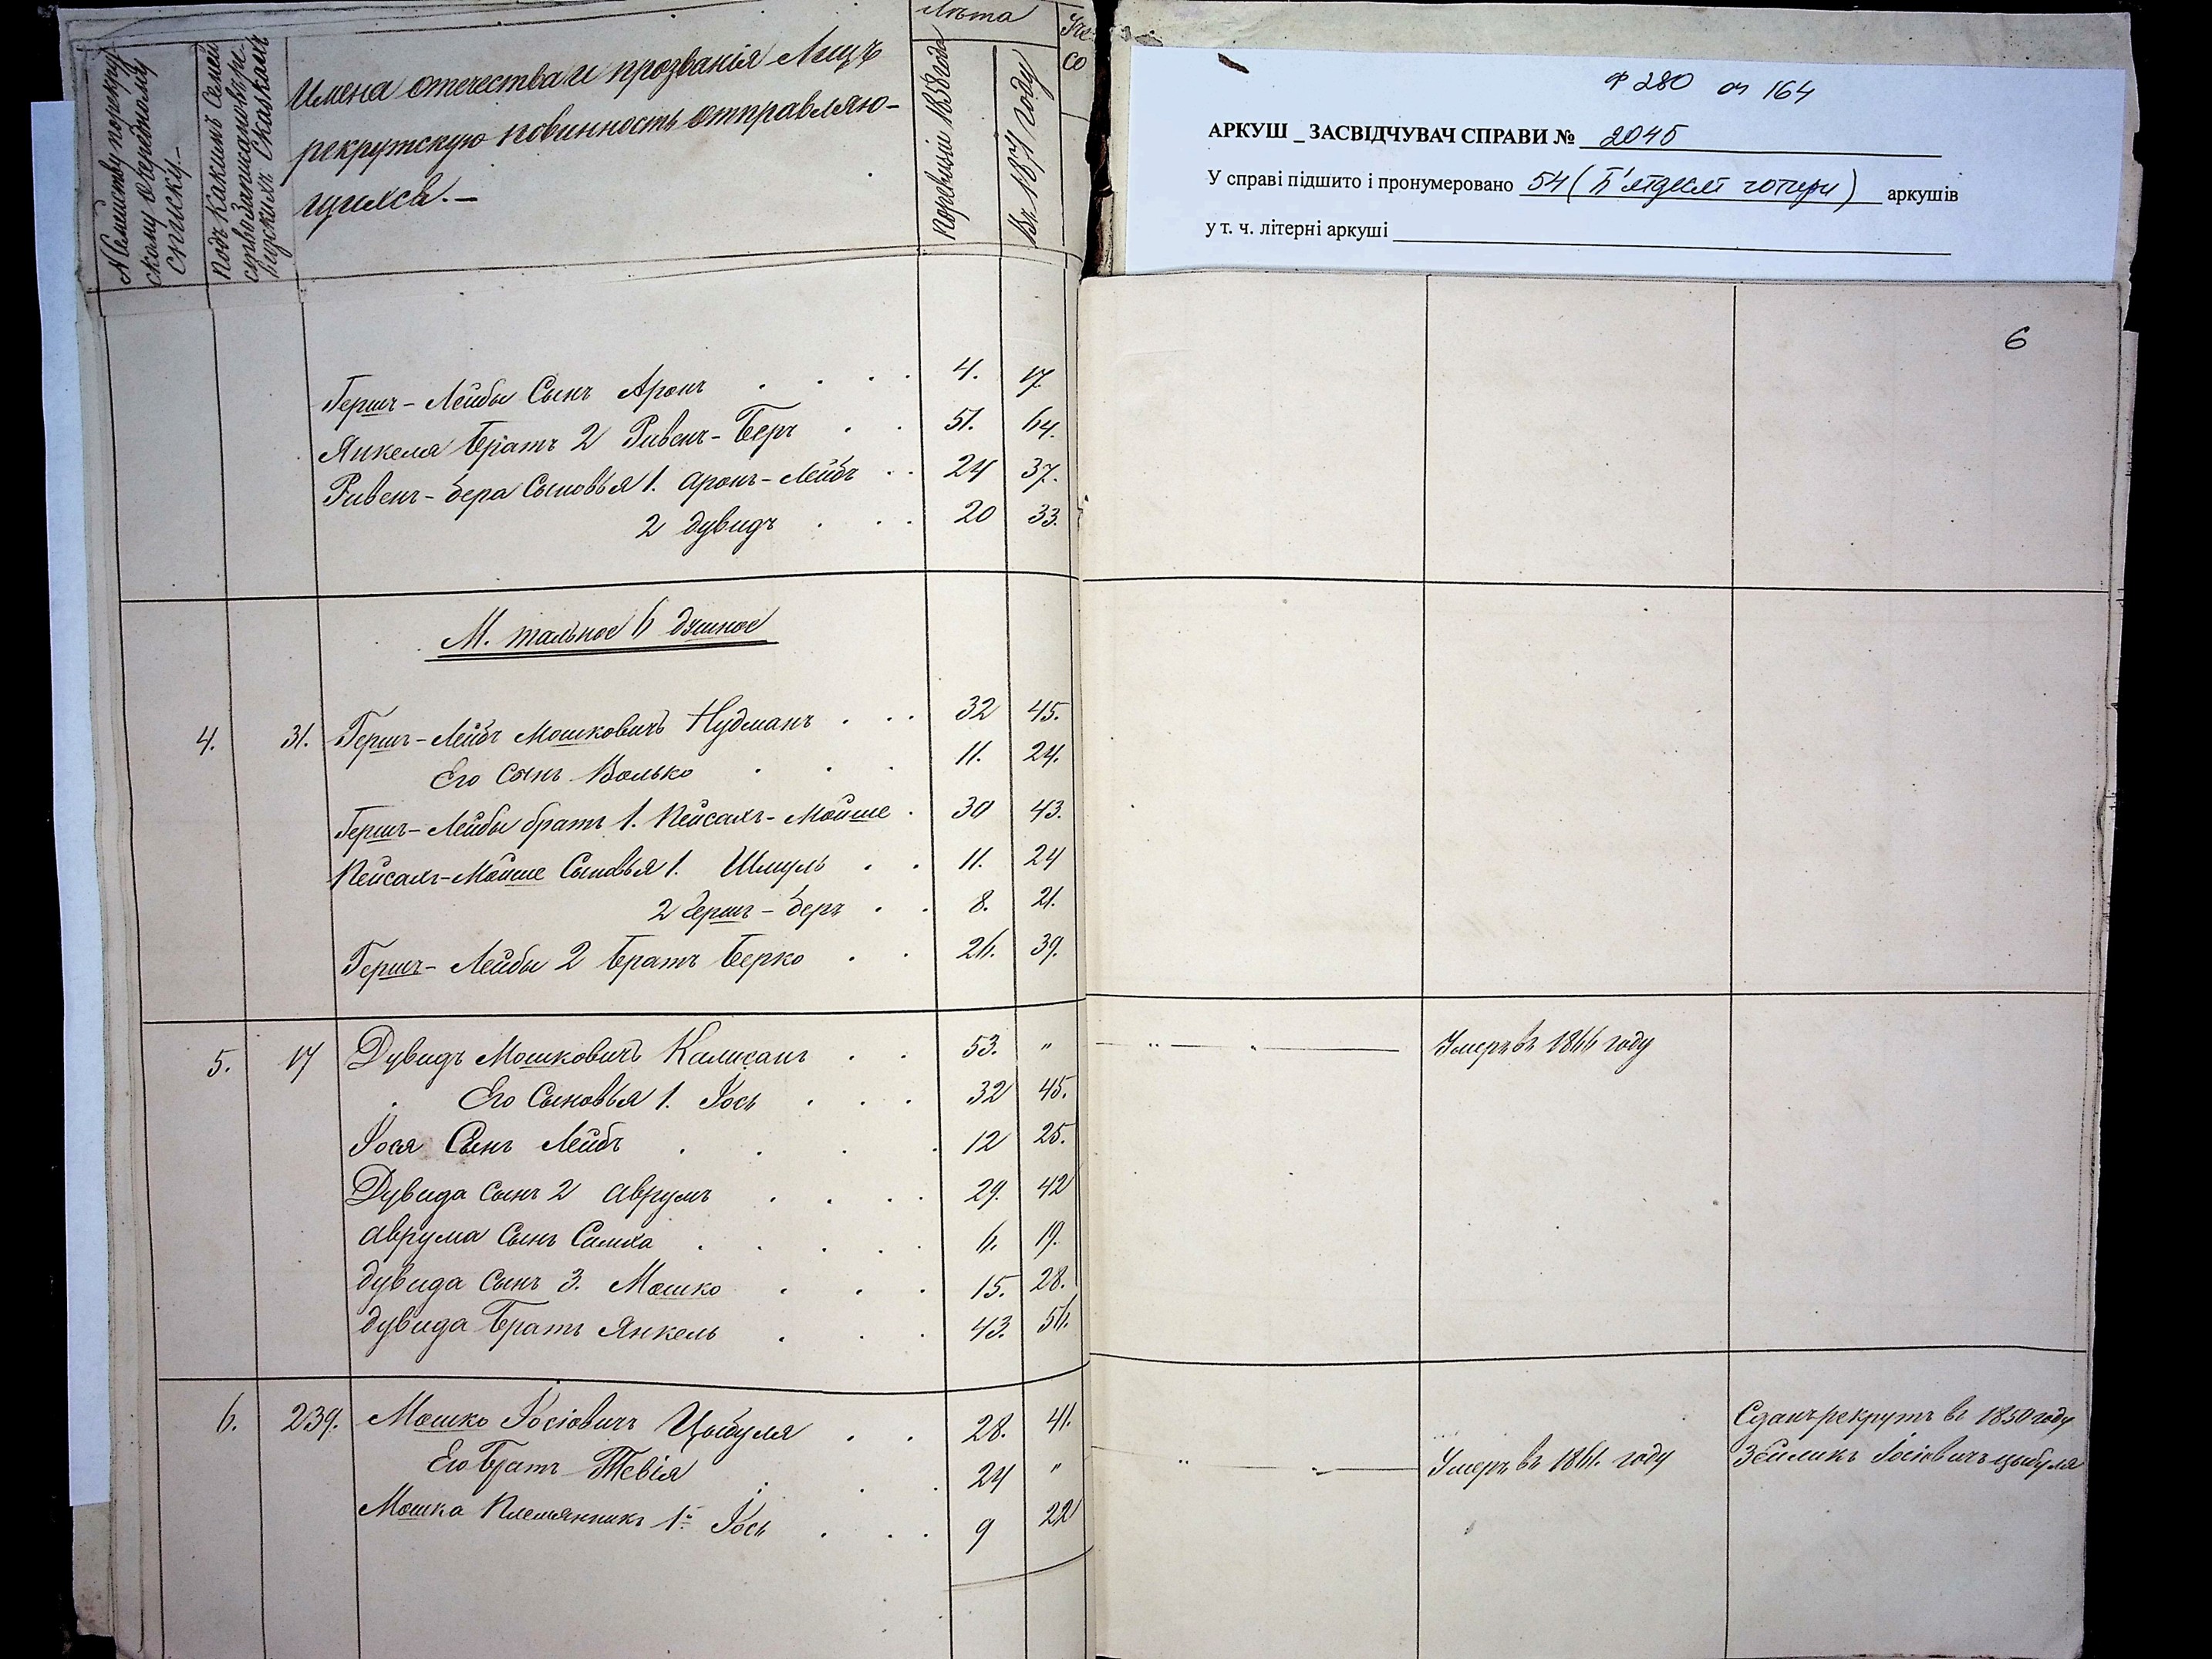 № Семейству по рекрут-
скому очередному
списку.—
Подъ какимъ семей-
ствъ записанъ въ ре-
визскихъ сказкахъ
Имена отечества и прозванія Лицъ
рекрутскую повинность отправляю-
щихся.—
Лѣта
По ревизіи 1858 года
Въ 1871 году
Со
Ф 280 оп 164
АРКУШ _ ЗАСВІДЧУВАЧ СПРАВИ № 2045
У справі підшито і пронумеровано 54 (П'ятдесят чотири) аркушів
у т. ч. літерні аркуші
6
Гершъ-Лейбы Сынъ Аронъ 4. 17.
Янкеля Братъ 2 Рувенъ-Беръ 51. 64.
Рувенъ-Бера Сыновья 1. Аронъ-Лейбъ 24 37.
2 Дувидъ 20 33.
М. Тальное 6 душное
4. 31. Гершъ-Лейбъ Мошковичъ Нудманъ 32 45.
Его Сынъ Волько 11. 24.
Гершъ-Лейбы братъ 1. Пейсахъ-Мойше 30 43.
Пейсахъ-Мойше Сыновья 1. Шмуль 11. 24
2 Гершъ-Беръ 8. 21.
Гершъ-Лейбы 2 Братъ Берко 26. 39.
5. 17 Дувидъ Мошковичъ Калисанъ 53. " Умеръ въ 1866 году
Его Сыновья 1. Іось 32 45.
Іося Сынъ Лейбъ 12 25.
Дувида Сынъ 2 Аврумъ 29. 42
Аврума Сынъ Симха 6. 19.
Дувида Сынъ 3. Мошко 15. 28.
Дувида Братъ Янкель 43. 56.
6. 239. Мошко Іосіовичъ Цыбуля 28. 41. Сданъ рекрутъ въ 1850 году
Его Братъ Тевія 24 " Умеръ въ 1861. году Зейликъ Іосіовичъ Цыбуля
Мошка Племянникъ 1й Іось 9 22